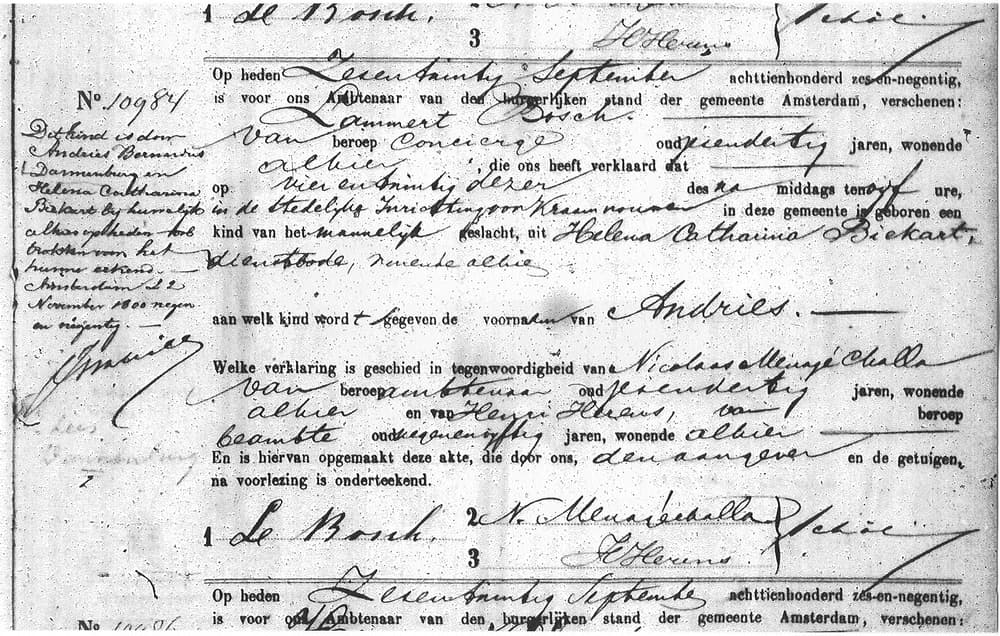 1 Le Bosch.
3 H Herens
Op heden Zesentwintig September achttienhonderd zes-en-negentig,
is voor ons Ambtenaar van den burgerlijken stand der gemeente Amsterdam, verschenen:
Lammert Bosch.
van beroep Concierge oud zesendertig jaren, wonende
alhier, die ons heeft verklaard dat
op vier en twintig dezer des na middags ten vijf ure,
in de Stedelijke Inrichting voor Kraamvrouwen in deze gemeente is geboren een
kind van het mannelijk geslacht, uit Helena Catharina Biekart,
dienstbode, wonende alhier
aan welk kind wordt gegeven de voornaam van Andries.
Welke verklaring is geschied in tegenwoordigheid van Nicolaas Menagé Challa
van beroep ambtenaar oud zesendertig jaren, wonende
alhier en van Henri Herens, van beroep
beambte oud negenenvijftig jaren, wonende alhier
En is hiervan opgemaakt deze akte, die door ons, den aangever en de getuigen,
na voorlezing is onderteekend.
1 Le Bosch. 2 N. Menagé Challa
3 H Herens
No. 10984
Dit kind is door
Andries Bernardus
Dannenburg en
Helena Catharina
Biekart bij huwelijk
alhier op heden vol
trokken voor het
hunne erkend.
Amsterdam 22
November 1800 negen
en negentig.
Lees
Dannenburg
Op heden Zesentwintig September achttienhonderd zes-en-negentig,
is voor ons Ambtenaar van den burgerlijken stand der gemeente Amsterdam, verschenen:
No.